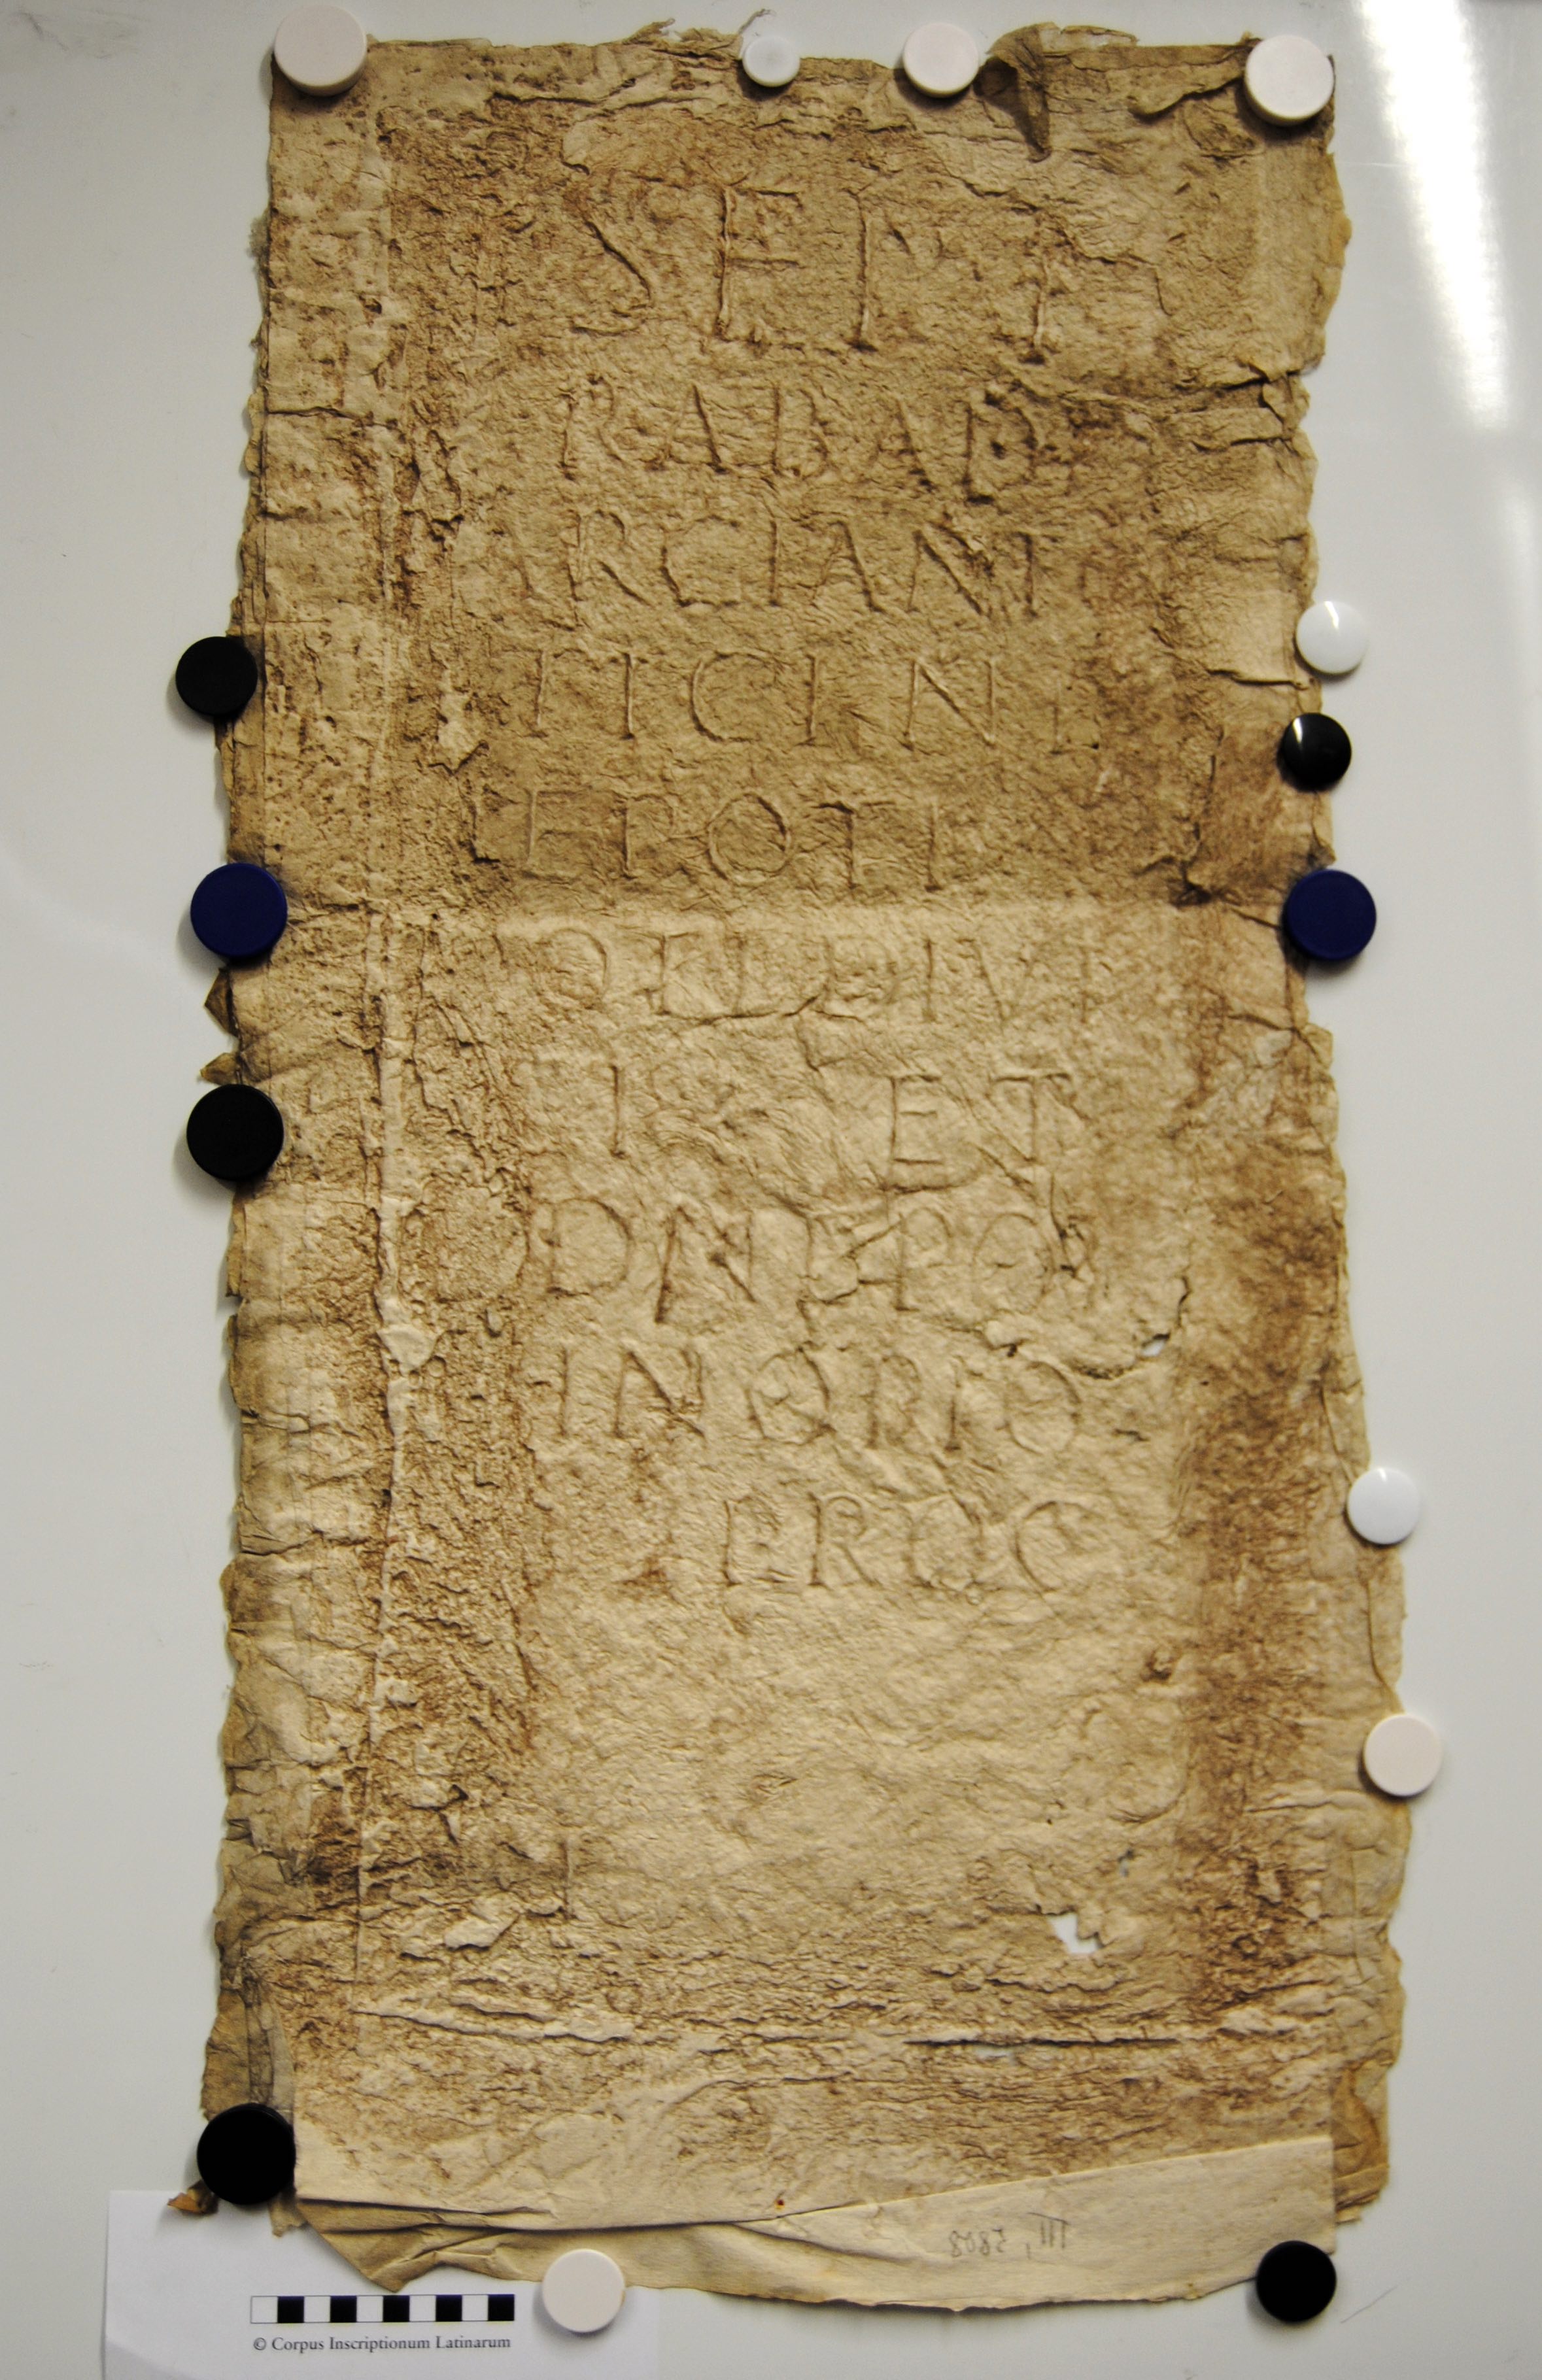 SEPT
RABAD
ARCIANT
TICI N
EPOTI
OTI DIVI
I ET
DNEPO
INO PIO
III, 5808
© Corpus Inscriptionum Latinarum